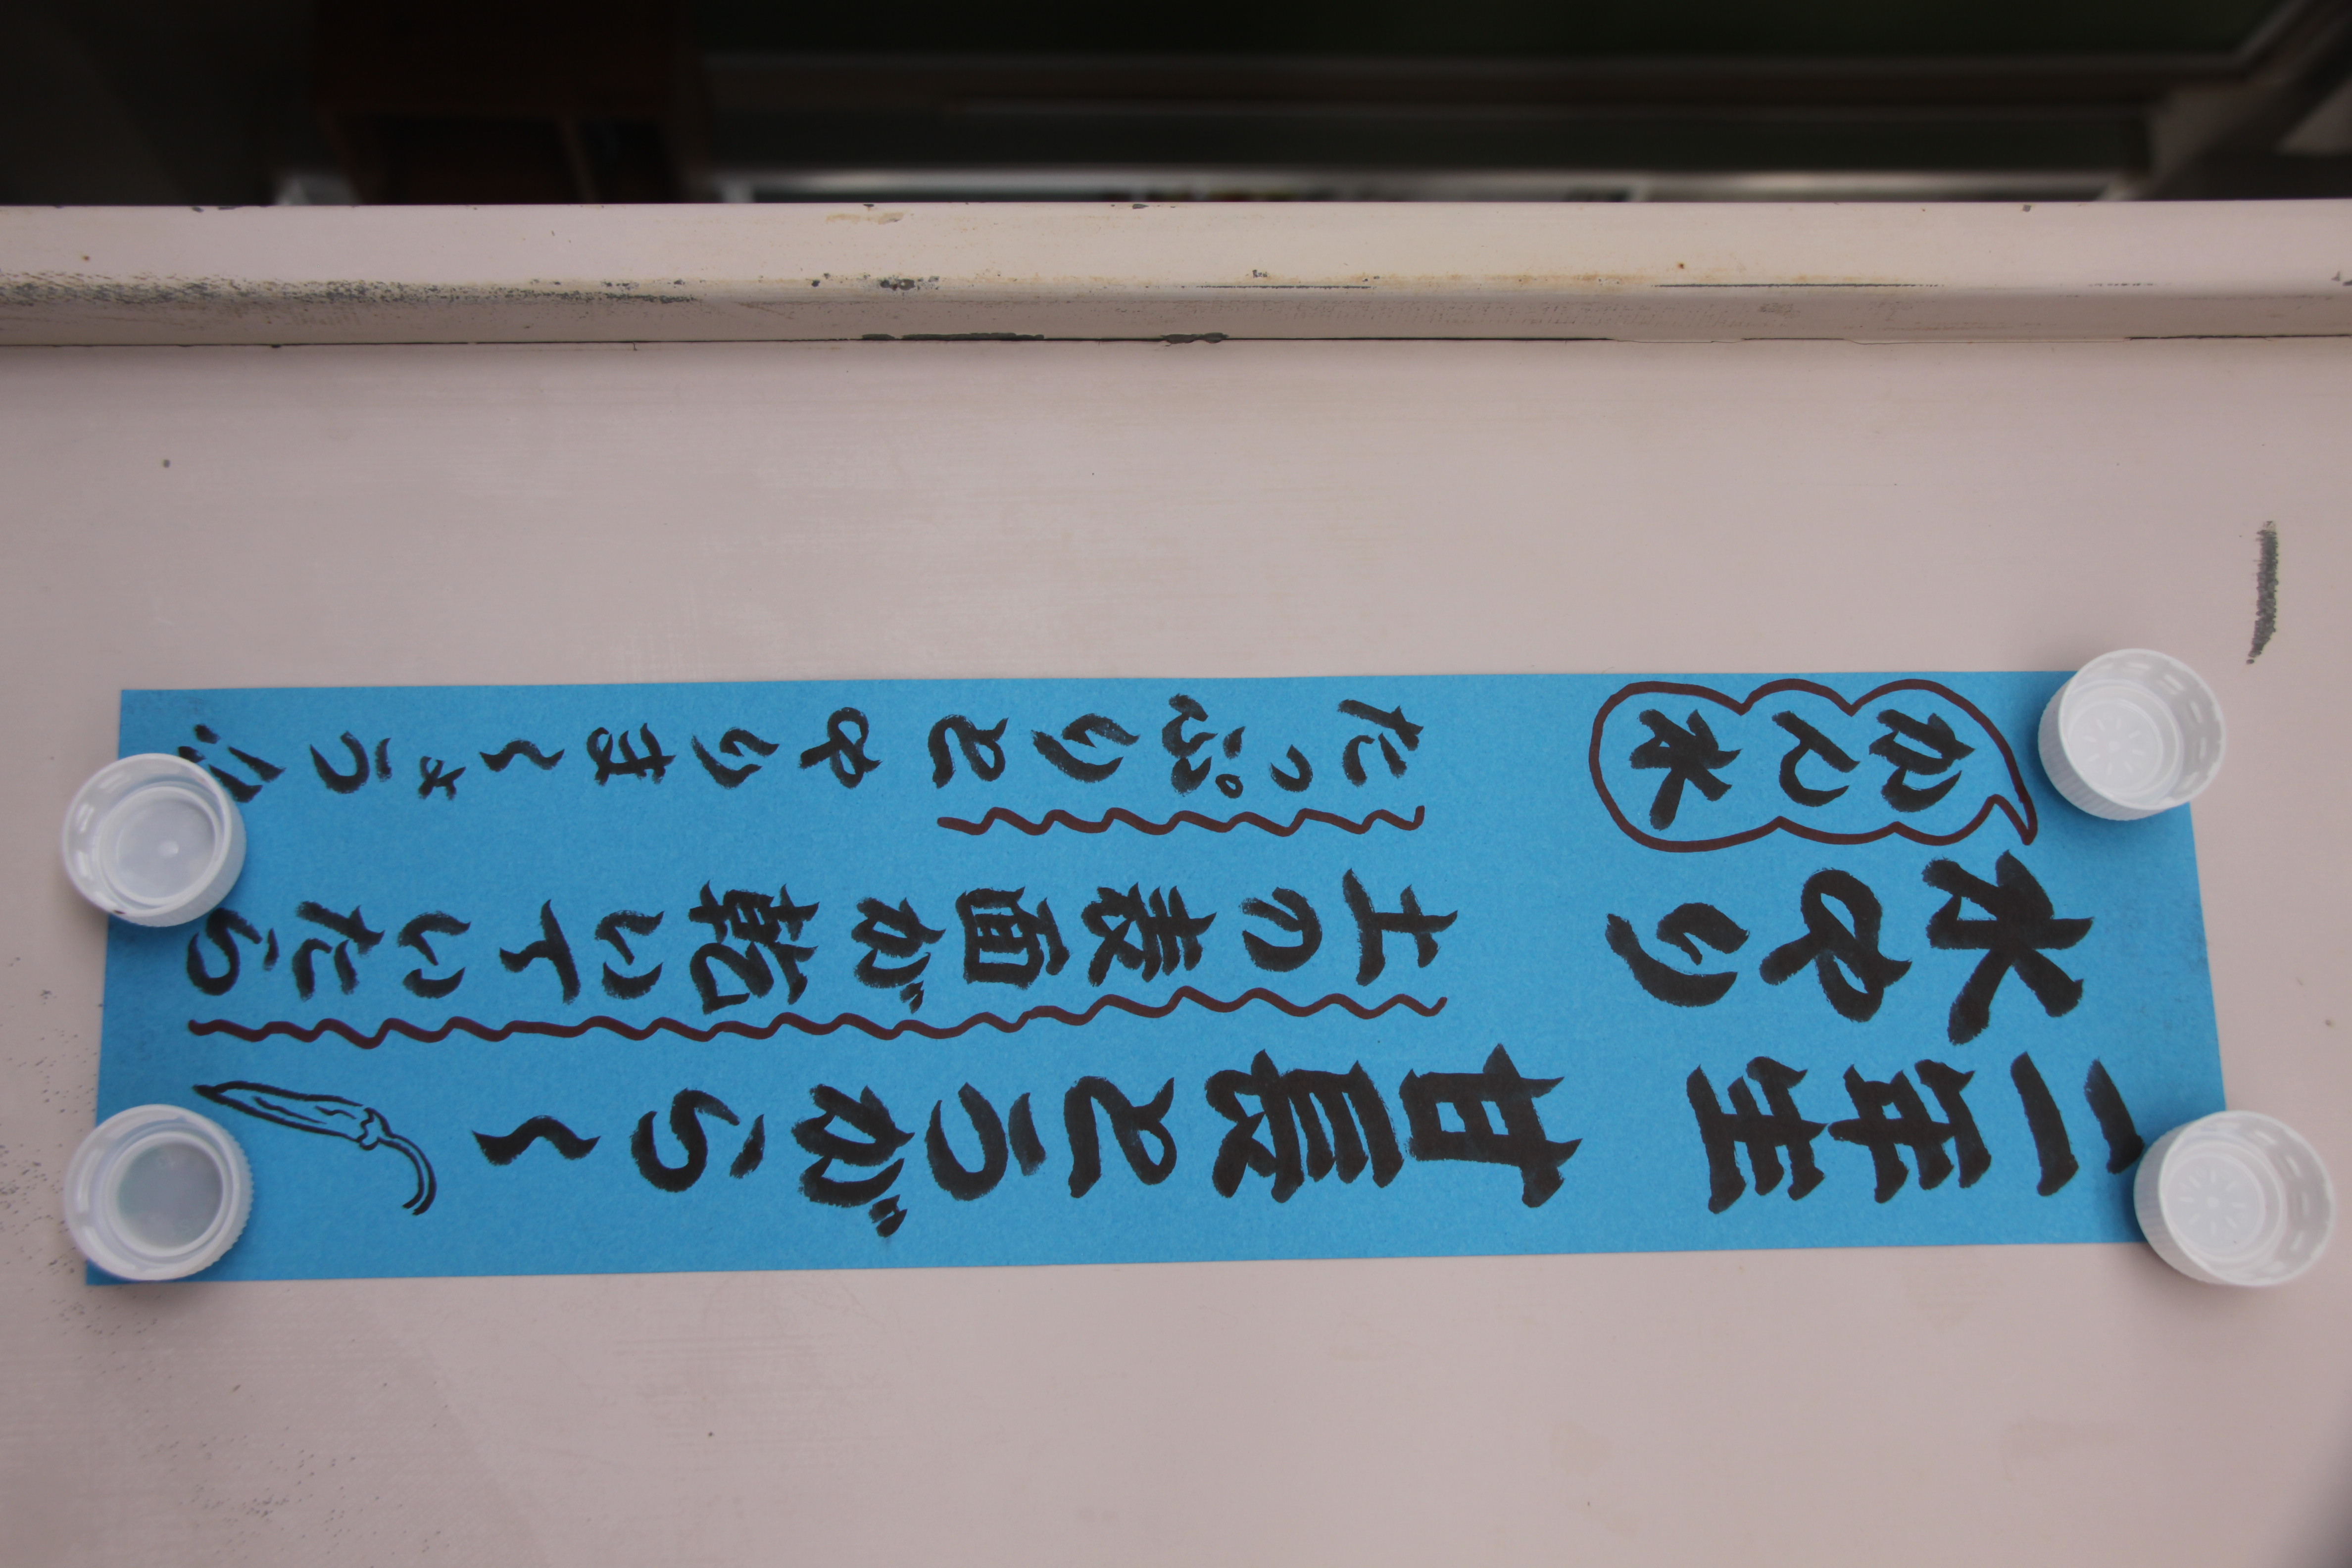 二年生 甘長とうがらし
水やり 土の表面が乾いていたら
かん水 たっぷりとやりましょう!!